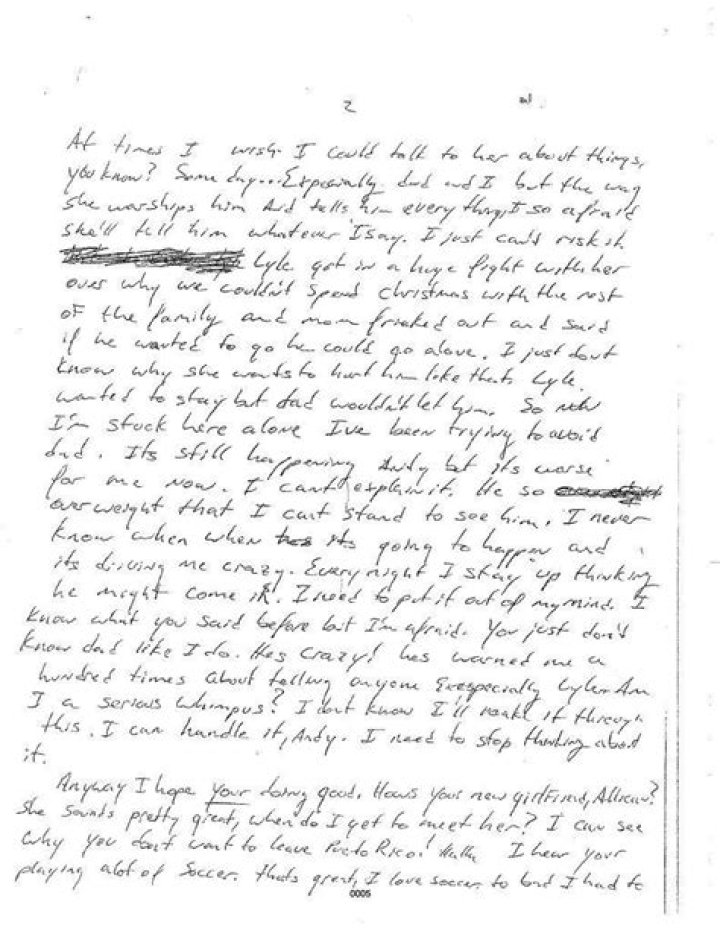 2
At times I wish I could talk to her about things,
you know? Some day...Expecially dad and I but the way
she worships him and tells him everything, I so afraid
she'll tell him whatever I say. I just can't risk it
Lyle got in a huge fight with her
over why we couldn't spend christmas with the rest
of the family and mom friaked out and said
if he wanted to go he could go alone. I just dont
know why she wants to hurt him like that. Lyle
wanted to stay but dad wouldn't let him. So now
I'm stuck here alone I've been trying to avoid
dad. Its still happening Andy but its worse
for me now. I can't explain it. He so
overweight that I can't stand to see him. I never
know when when its going to happen and
its driving me crazy. Every night I stay up thinking
he might come in. I need to put it out of my mind. I
know what you said before but I'm afraid. You just don't
know dad like I do. Hes crazy! hes warned me a
hundred times about telling anyone Exespecially Lyle. Am
I a serious whimpus? I dont know I'll make it through
this. I can handle it, Andy. I need to stop thinking about
it.
Anyway I hope your doing good. Hows your new girlfriend, Allison?
She sounds pretty great, when do I get to meet her? I can see
why you don't want to leave Puerto Rico! HaHa I hear your
playing alot of soccer. thats great, I love soccer to but I had to
0005